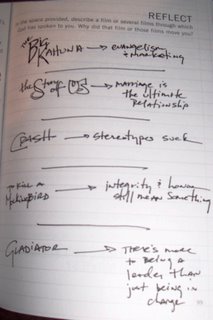 REFLECT
In the space provided, describe a film or several films through which
God has spoken to you. Why did that film or those films move you?
the BIG
KAHUNA → evangelism
≠ marketing
the Story of US → marriage is
the ultimate
relationship
CRASH → stereotypes suck
To Kill A
Mockingbird → integrity & honor
still mean something
GLADIATOR → There's more
to being a
leader than
just being in
charge
99